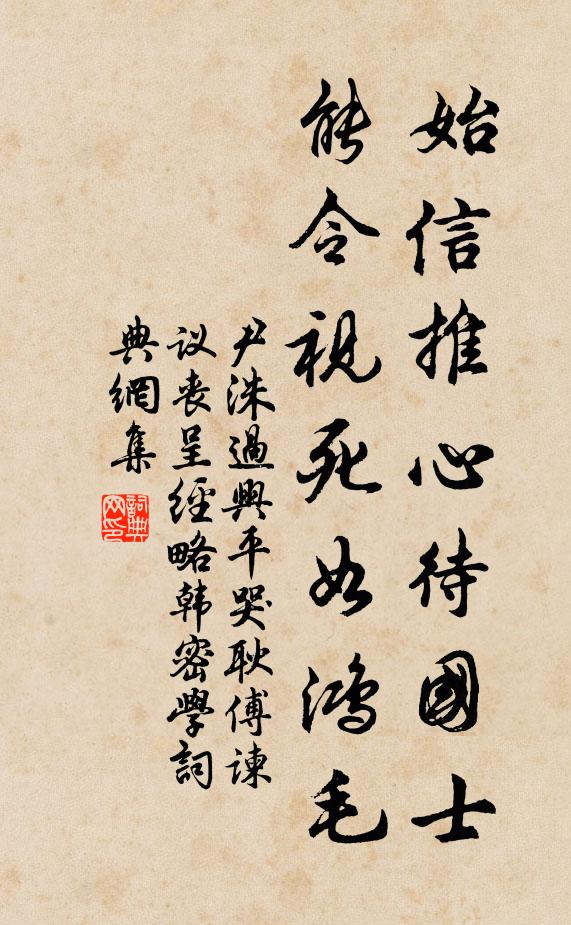 始信推心待國士
能令視死如鴻毛
尹洙過興平哭耿傅諫
议丧呈經略韩密學詞
典網集
詞典网印